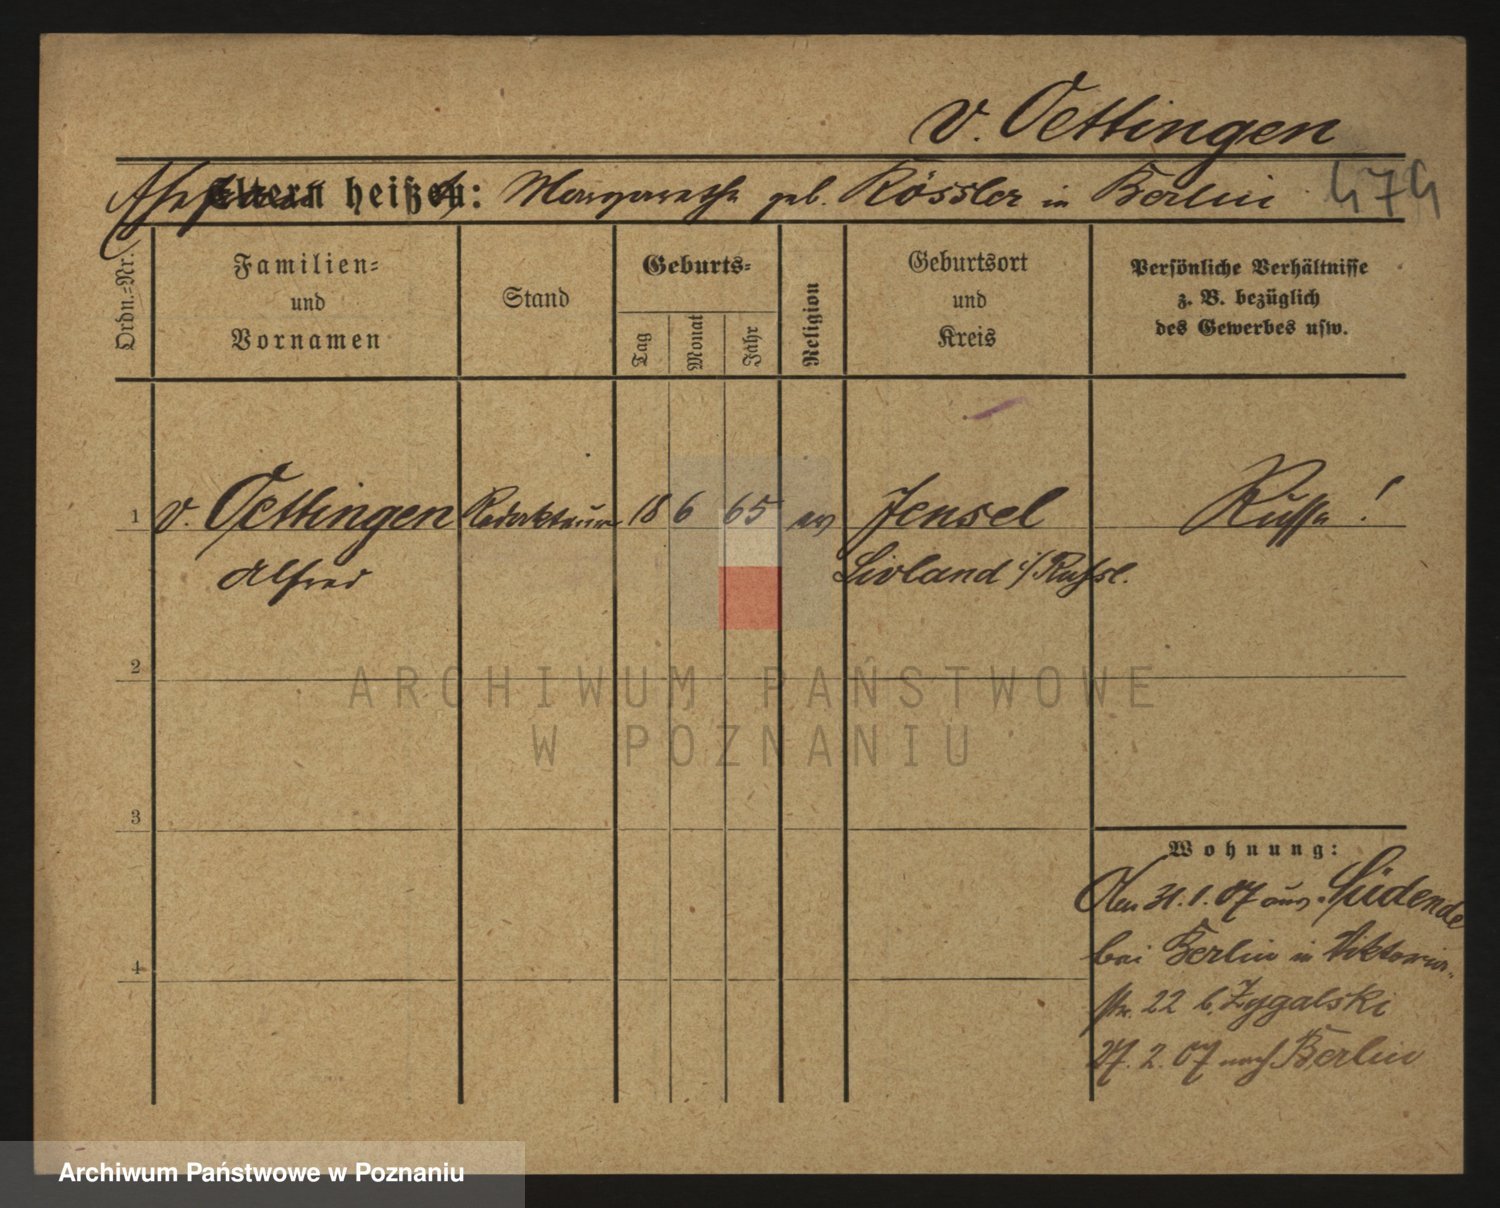 v. Oettingen
Ehefrau heißt: Margarethe geb. Rössler in Berlin 474
Ordn.-Nr.
Familien-
und
Vornamen
Stand
Geburts-
Tag
Monat
Jahr
Religion
Geburtsort
und
Kreis
Persönliche Verhältnisse
z. B. bezüglich
des Gewerbes usw.
1 v. Oettingen Redakteur 18 6 65 ev Jensel Russe!
Alfred Livland i/Russl.
2
3
4
Wohnung:
Den 31.1.07 aus Südende
bei Berlin in Viktoria-
str. 22 b. Zygalski
27.2.07 nach Berlin
ARCHIWUM PAŃSTWOWE
W POZNANIU
Archiwum Państwowe w Poznaniu